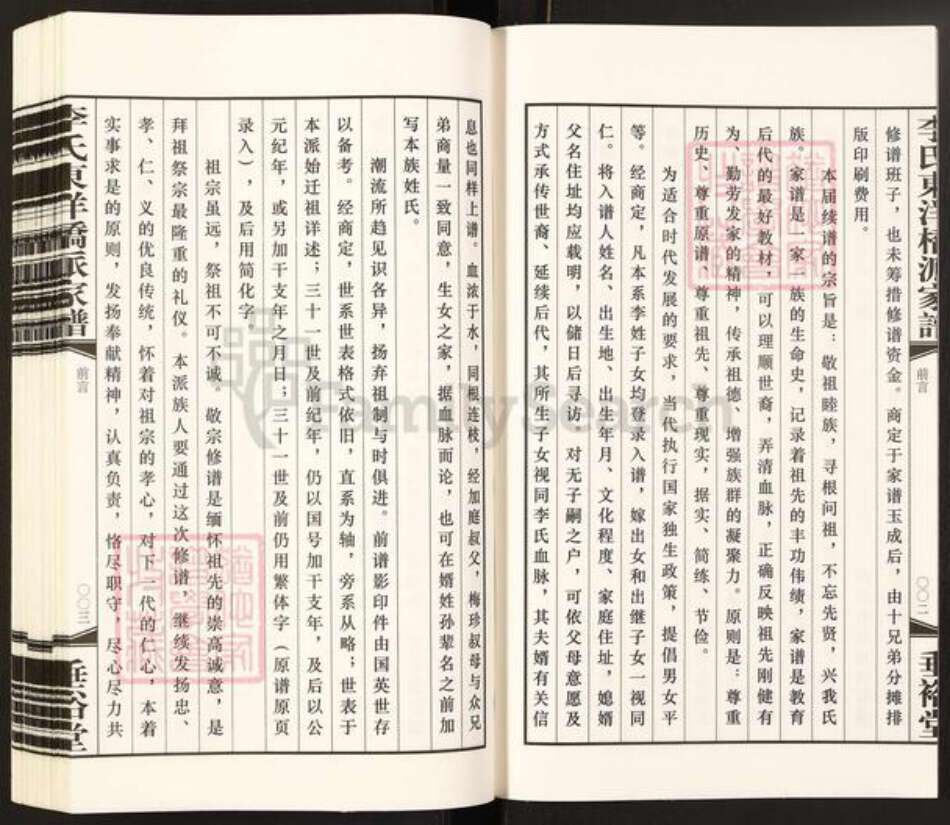 李氏東洋橋派家譜
前言
〇〇二
垂裕堂
修谱班子，也未筹措修谱资金。商定于家谱玉成后，由十兄弟分摊排
版印刷费用。
本届续谱的宗旨是：敬祖睦族，寻根问祖，不忘先贤，兴我氏
族。家谱是一家一族的生命史，记录着祖先的丰功伟绩，家谱是教育
后代的最好教材，可以理顺世裔，弄清血脉，正确反映祖先刚健有
为、勤劳发家的精神，传承祖德、增强族群的凝聚力。原则是：尊重
历史、尊重原谱、尊重祖先、尊重现实，据实、简练、节俭。
为适合时代发展的要求，当代执行国家独生政策，提倡男女平
等。经商定，凡本系李姓子女均登录入谱，嫁出女和出继子女一视同
仁。将入谱人姓名、出生地、出生年月、文化程度、家庭住址，媳婿
父名住址均应载明，以储日后寻访。对无子嗣之户，可依父母意愿及
方式承传世裔、延续后代，其所生子女视同李氏血脉，其夫婿有关信
息也同样上谱。血浓于水，同根连枝，经加庭叔父，梅珍叔母与众兄
弟商量一致同意，生女之家，据血脉而论，也可在婿姓孙辈名之前加
写本族姓氏。
潮流所趋见识各异，扬弃祖制与时俱进。前谱影印件由国英世存
以备考。经商定，世系世表格式依旧，直系为轴，旁系从略；世表于
本派始迁祖详述；三十一世及前纪年，仍以国号加干支年，及后以公
元纪年，或另加干支年之月日；三十一世及前仍用繁体字（原谱原页
录入），及后用简化字。
祖宗虽远，祭祖不可不诚。敬宗修谱是缅怀祖先的崇高诚意，是
拜祖祭宗最隆重的礼仪。本派族人要通过这次修谱，继续发扬忠、
孝、仁、义的优良传统，怀着对祖宗的孝心，对下一代的仁心，本着
实事求是的原则，发扬奉献精神，认真负责，恪尽职守，尽心尽力共
李氏東洋橋派家譜
前言
〇〇三
垂裕堂
FamilySearch